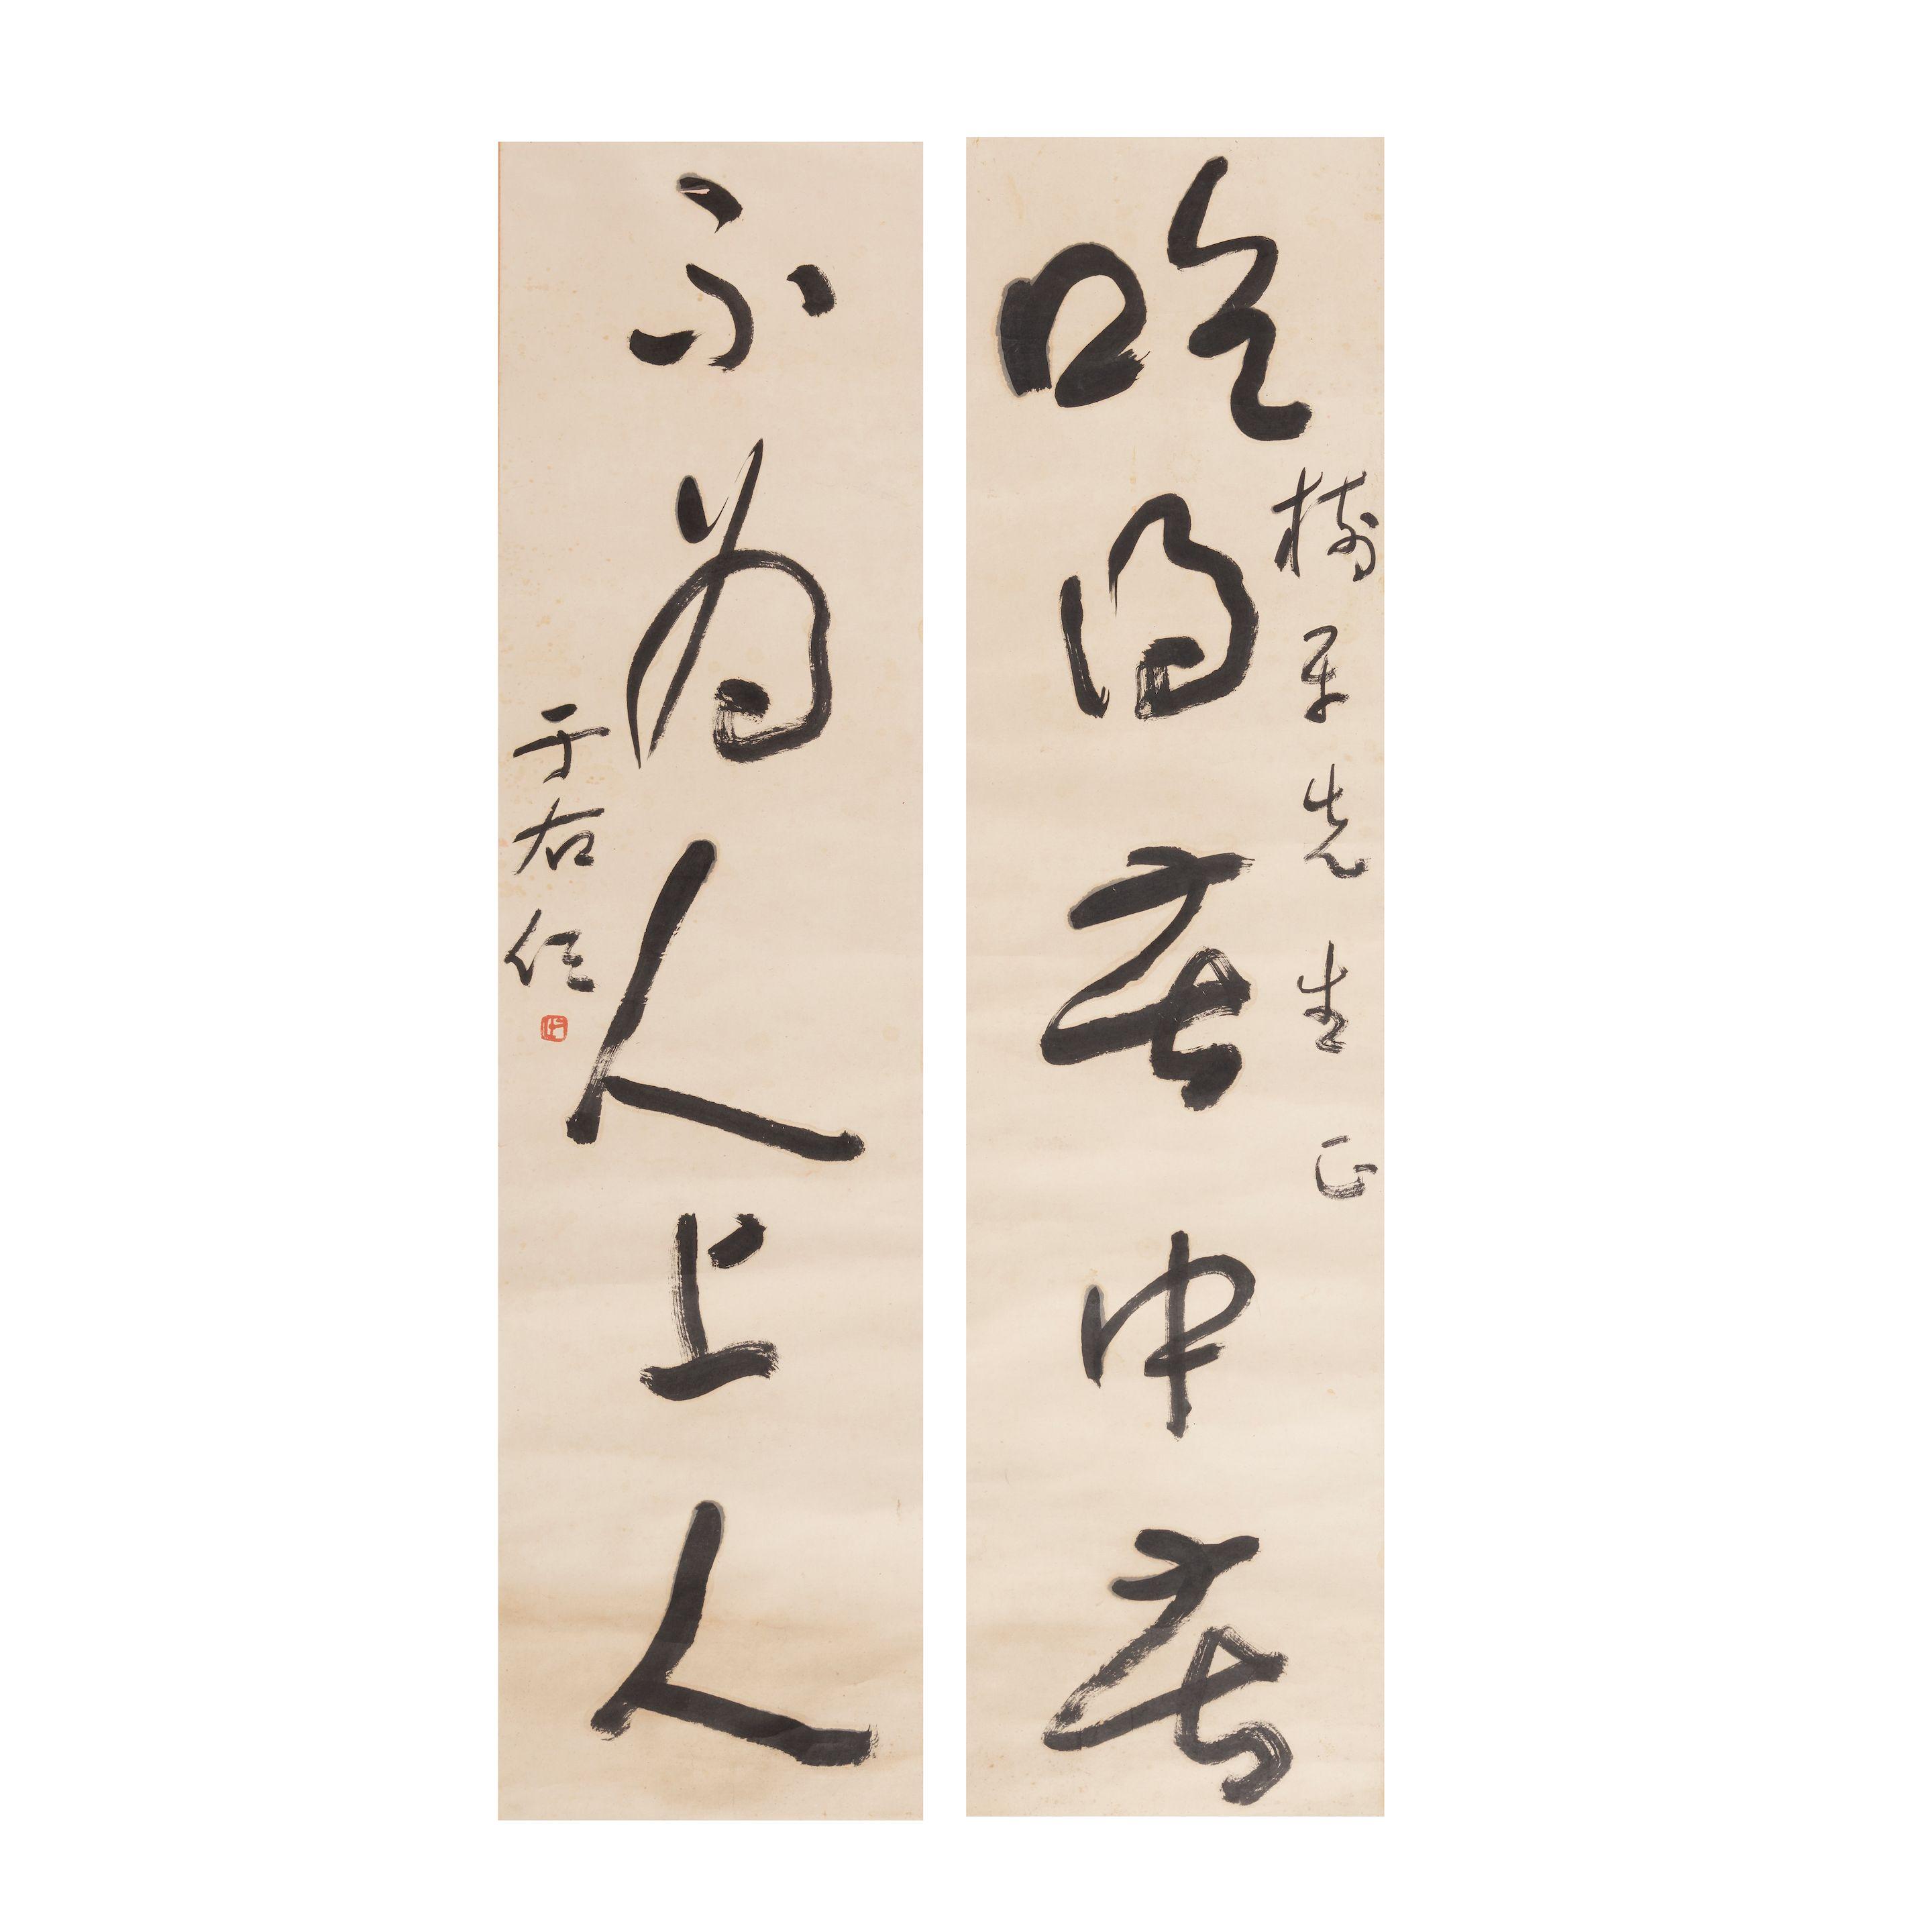 樹平先生正
吃得苦中苦
不為人上人
于右任